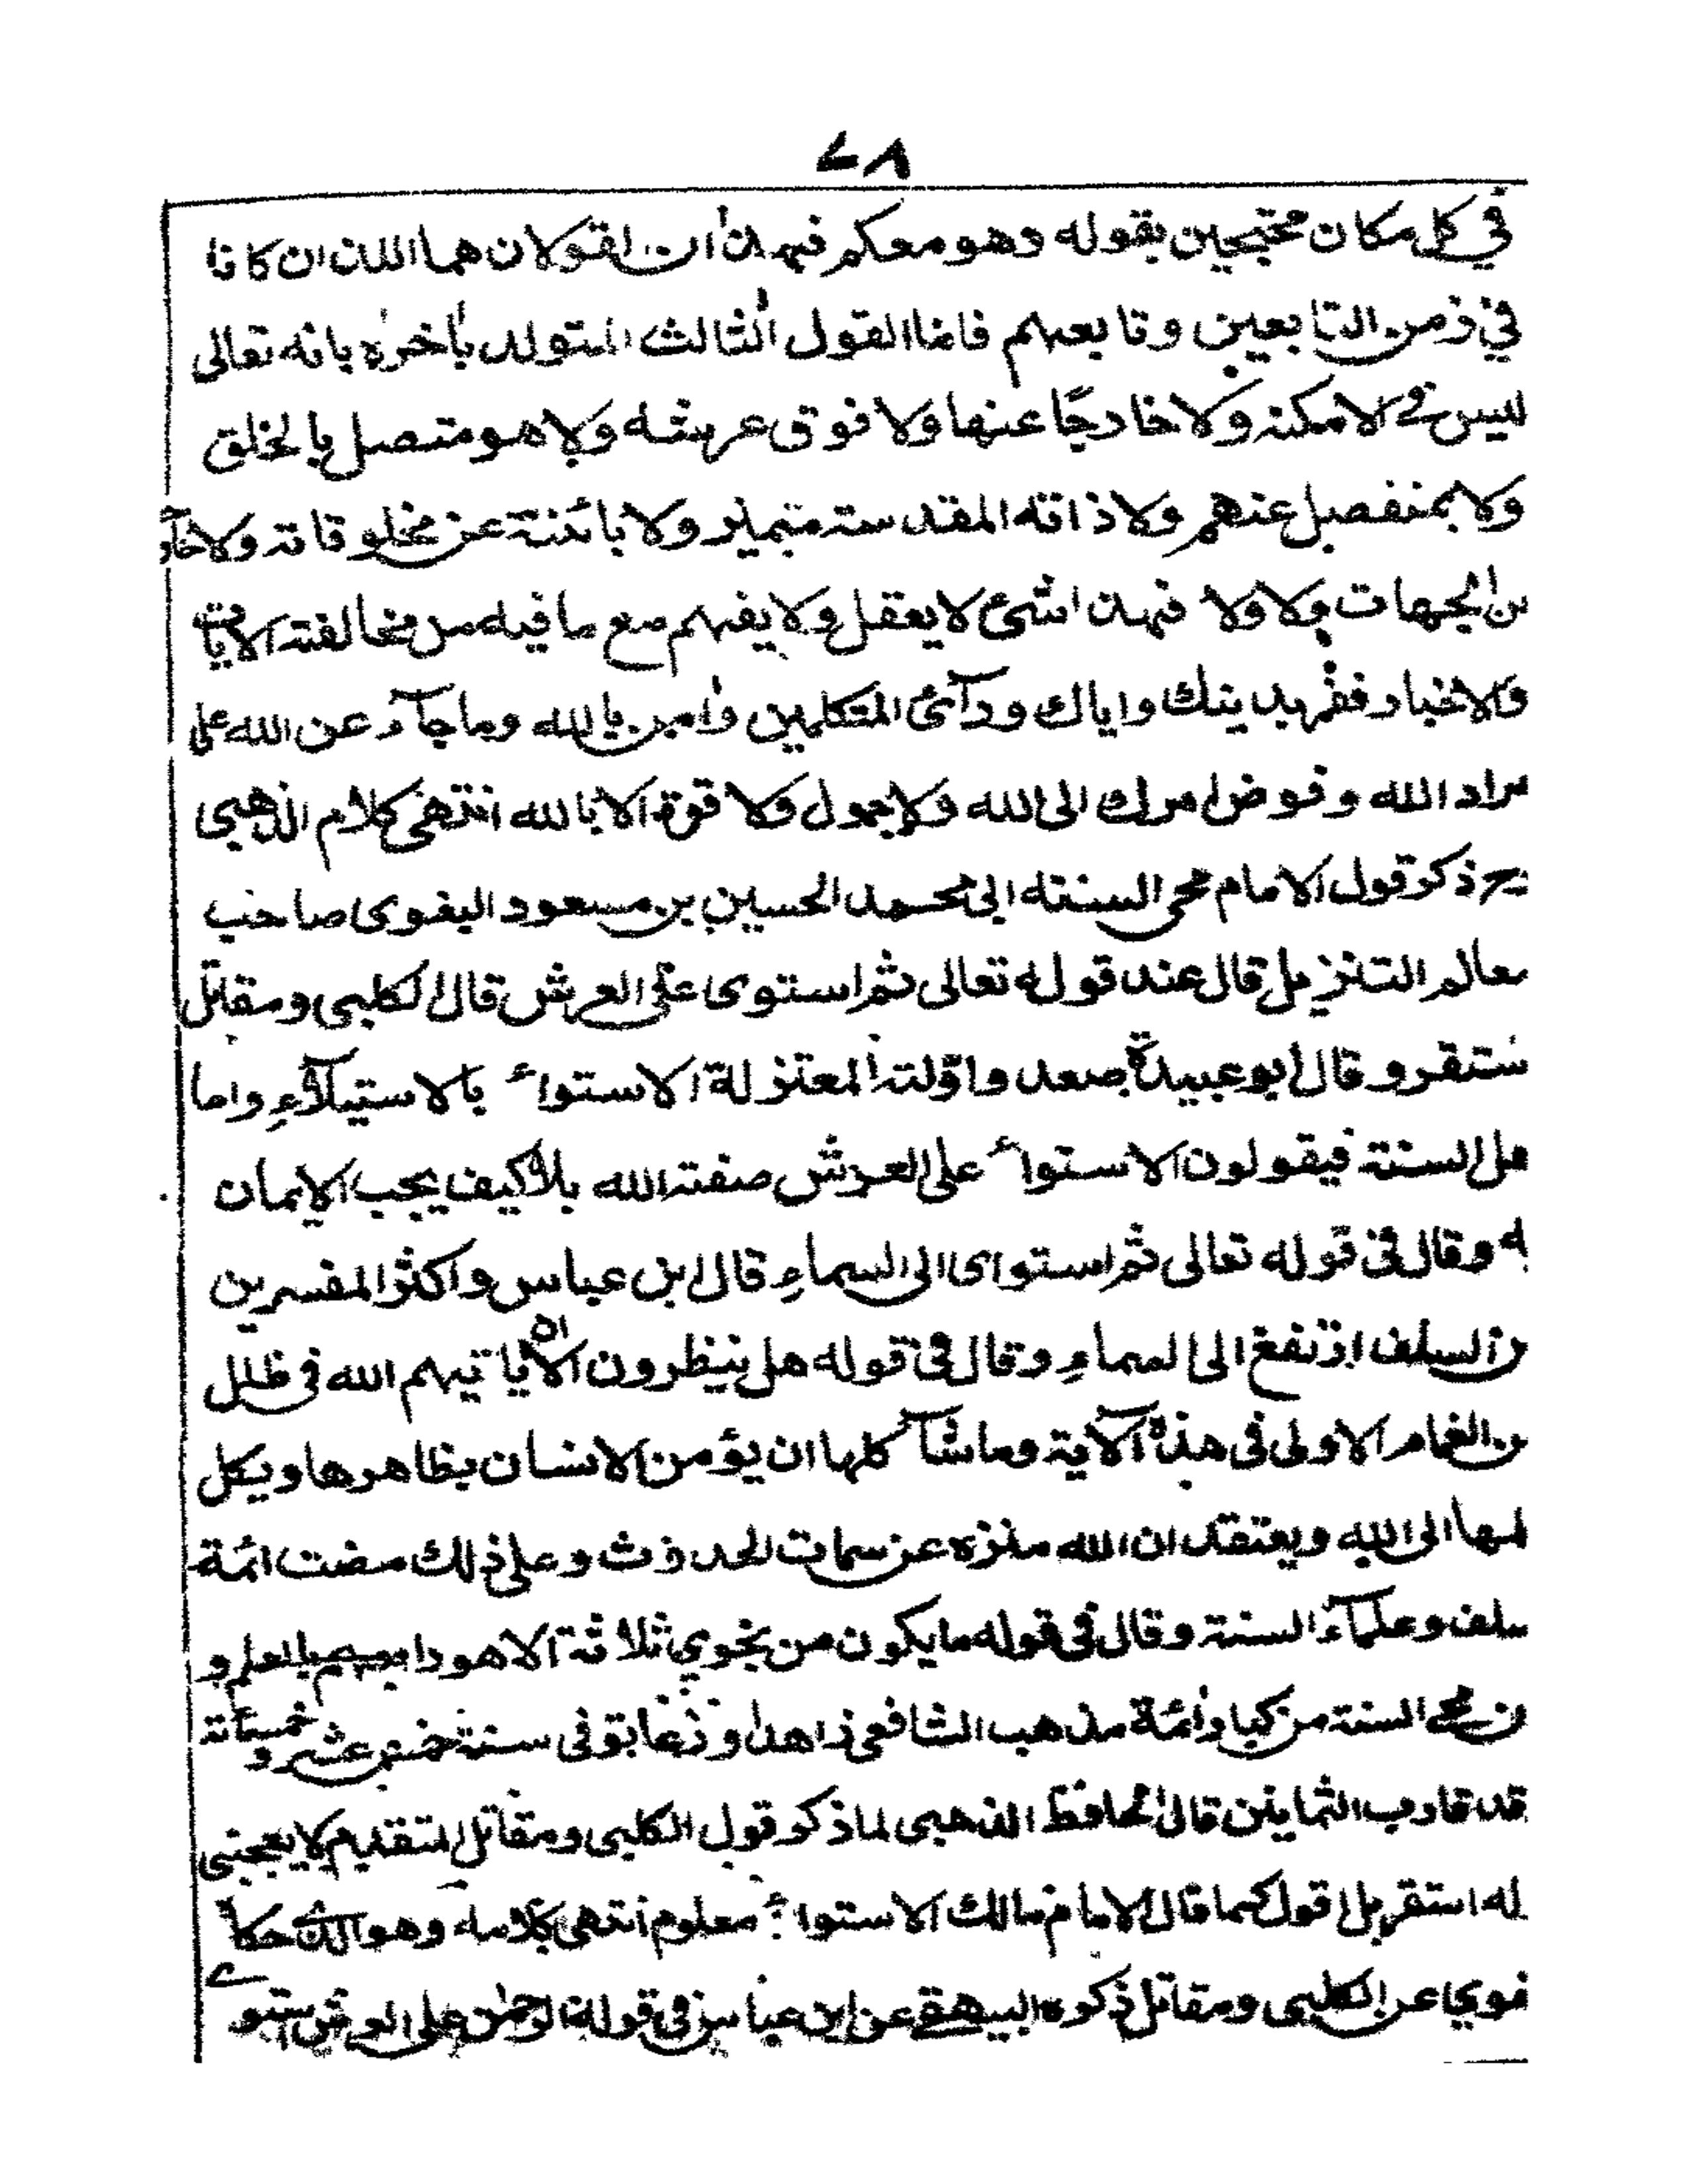 ٧٨
في كل مكان محتجين بقوله وهو معكم فهذان القولان هما اللذان كانا
في زمن التابعين وتابعهم فاما القول الثالث المتولد باخره بانه تعالى
ليس في الامكنة ولا خارجًا عنها ولا فوق عرشه ولا هو متصل بالخلق
ولا بمنفصل عنهم ولا ذاته المقدسته متميز ولا بائنة عن مخلوقاته ولا
من الجهات ولا ولا فهذا شئ لا يعقل ولا يفهم مع ما فيه من مخالفته الايات
والاخبار ففر بدينك واياك ورآئ المتكلمين وامن بالله وما جآء عن الله على
مراد الله وفوض امرك الى الله ولا حول ولا قوة الا بالله انتهى كلام الذهبي
ذكر قول الامام محى السنته ابى محمد الحسين بن مسعود البغوى صاحب
معالم التنزيل قال عند قوله تعالى ثم استوى على العرش قال الكلبى ومقاتل
ستقر وقال ابو عبيدة صعد واوّلت المعتزلة الاستواء بالاستيلآء واما
هل السنة فيقولون الاستواء على العرش صفة الله بلا كيف يجب الايمان
به وقال فى قوله تعالى ثم استواى الى السماء قال ابن عباس واكثر المفسرين
من السلف ارتفع الى السماء وقال فى قوله هل ينظرون الا ان ياتيهم الله فى ظلل
من الغمام الاولى فى هذه الآية وما شآكلها ان يؤمن الانسان بظاهرها ويكل
لمها الى الله ويعتقد ان الله منزه عن سمات الحدوث وعلى ذلك مضت ائمة
سلف وعلمآء السنة وقال فى قوله ما يكون من نجوي ثلاثة الا هو رابعهم بالعلم و
ن محى السنة من كبار ائمة مذهب الشافعى زاهدا ورعا توفى سنة خمس عشر وخمسمأتة
قد قارب الثمانين قال الحافظ الذهبى لما ذكر قول الكلبى ومقاتل المتقديم لا يعجبنى
له استقر بل اقول كما قال الامام مالك الاستواء معلوم انتهى كلامه وهو الذى حكاه
غوي عن الكلبى ومقاتل ذكره البيهقى عن ابن عباس فى قوله الرحمن على العرش ستوے